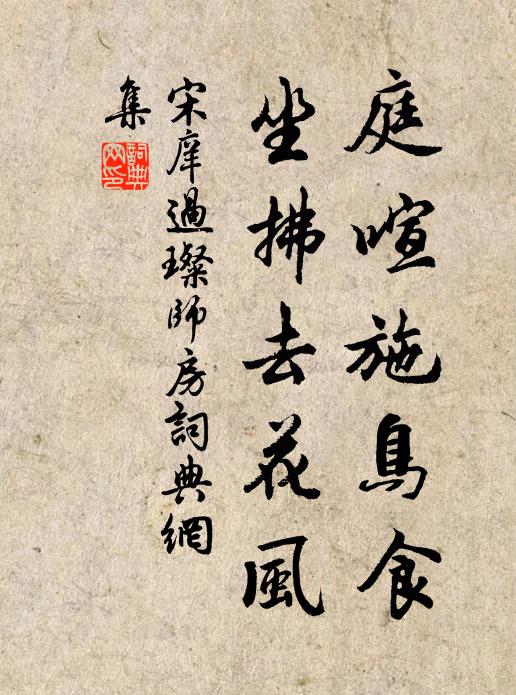 庭喧施鳥食
坐拂去花風
宋庠過璨師房詞典網
集
詞典
网印